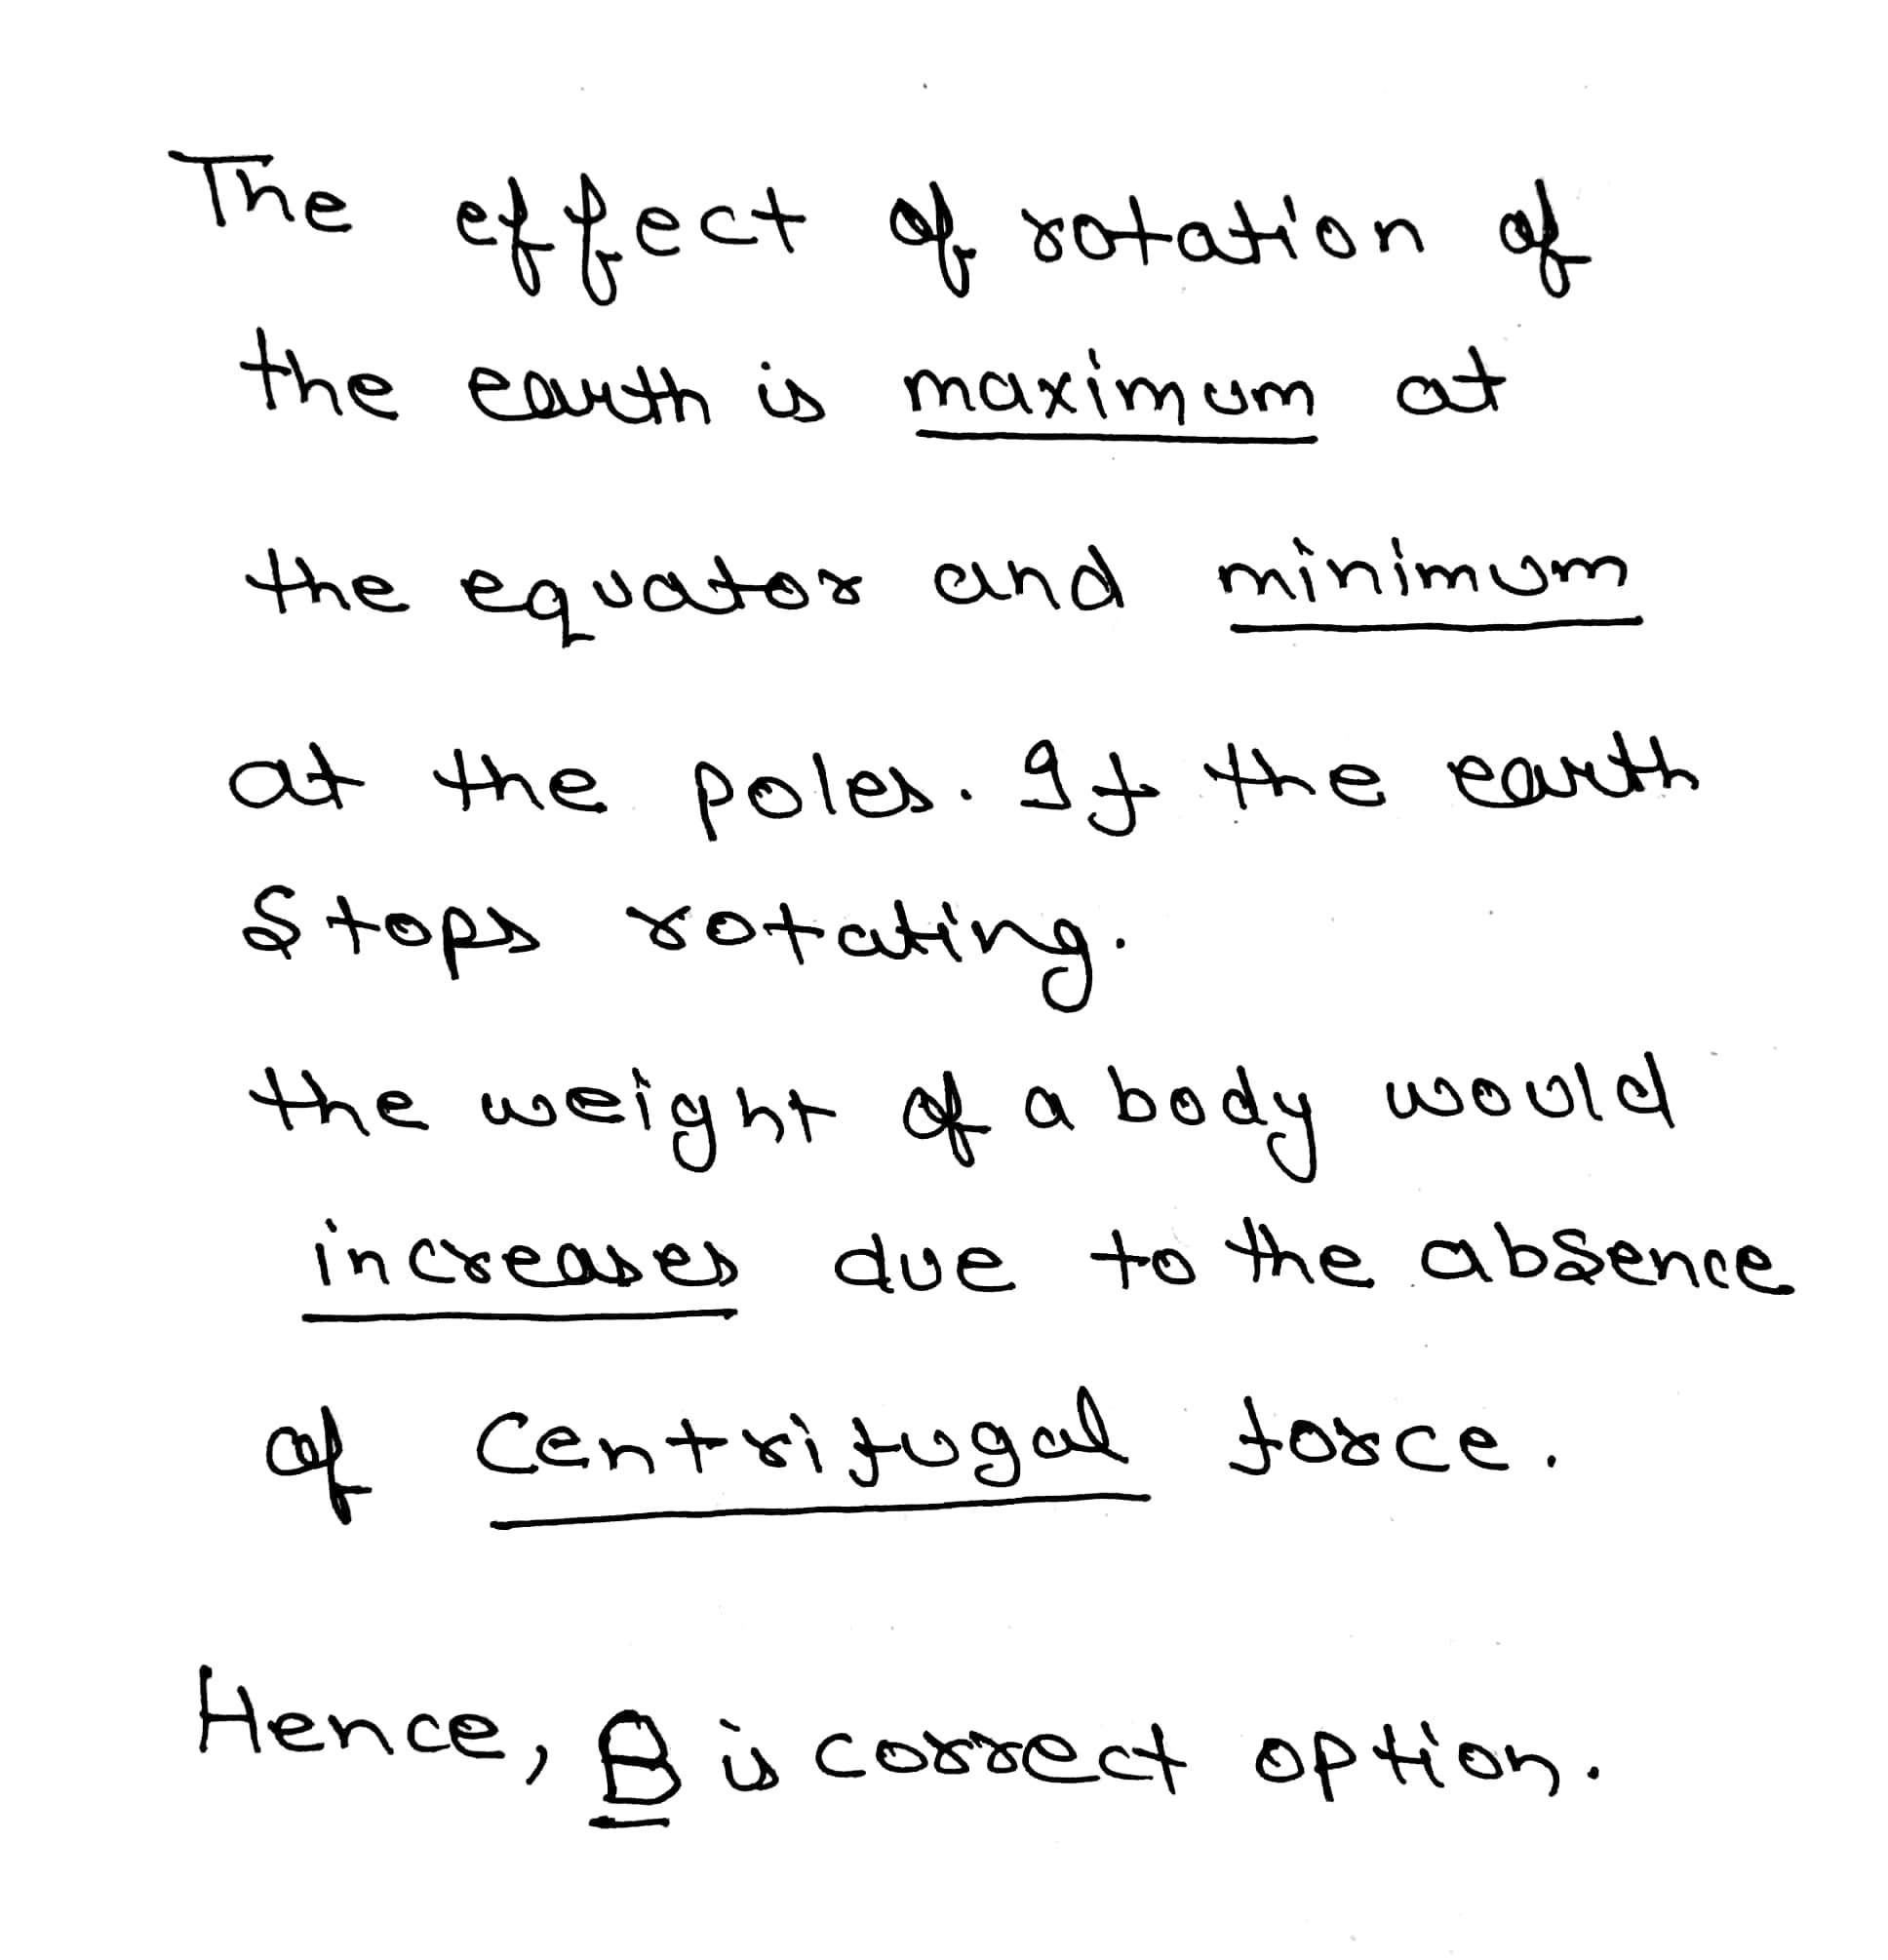 The effect of rotation of
the earth is maximum at
the equator and minimum
at the poles. If the earth
Stops rotating.
the weight of a body would
increases due to the absence
of Centrifugal force.
Hence, B is correct option.